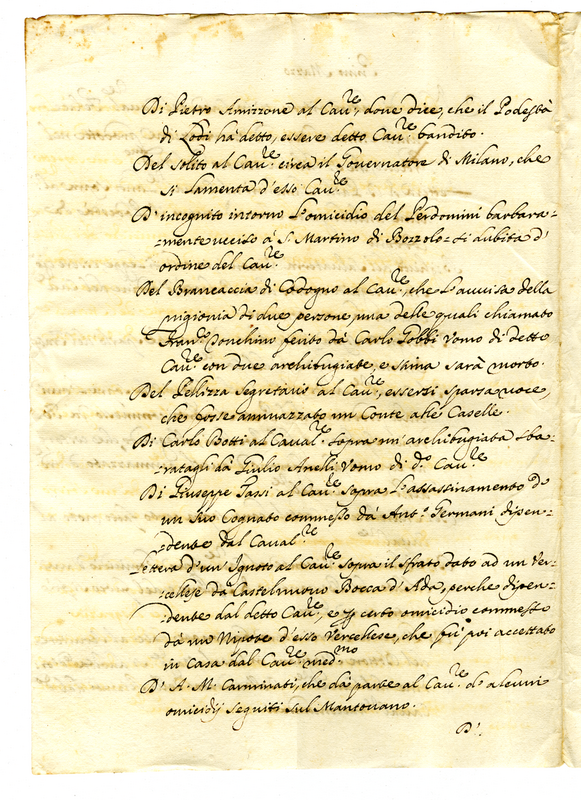 Di Pietro Amizzone al Cau.re, dove dice, che il Podestà
di Lodi hà detto, essere detto Cau.re bandito.
Del Solito al Cau.re circa il Governatore di Milano, che
si lamenta d'esso Cau.re
D'incognito intorno l'omicidio del Perdomini barbara-
-mente ucciso à S. Martino di Bozzolo si dubita d'
ordine del Cau.re
Del Brancaccia di Codogno al Cau.re, che l'avvisa della
prigionia di due persone, una delle quali chiamato
Fran.co Ronchino ferito dà Carlo Gobbi Uomo di detto
Cau.re con due archibugiate, e stima sarà morto.
Del Pellizza Segretario al Cau.re, essersi sparsa voce,
che fosse ammazzato un Conte alle Caselle.
Di Carlo Botti al Caval.re sopra un'archibugiata sba-
-ratagli dà Giulio Anelli Uomo di d.o Cau.re
Di Giuseppe Tassi al Cau.re sopra l'assassinamento de
un suo Cognato commesso dà Ant.o Germani dipen-
-dente dal Caval.re
Lettera d'un Ignoto al Cau.re sopra il sfrato dato ad un Ver-
-cellese da Castelnuovo Bocca d'Ada, perche dipen-
-dente dal detto Cau.re, e p certo omicidio commesso
dà un Nipote d'esso Vercellese, che fù poi accettato
in Casa dal Cau.re med.mo
D'A. M. Carminati, che dà parte al Cau.re di alcuni
omicidij seguiti sul Mantovano.
D'.